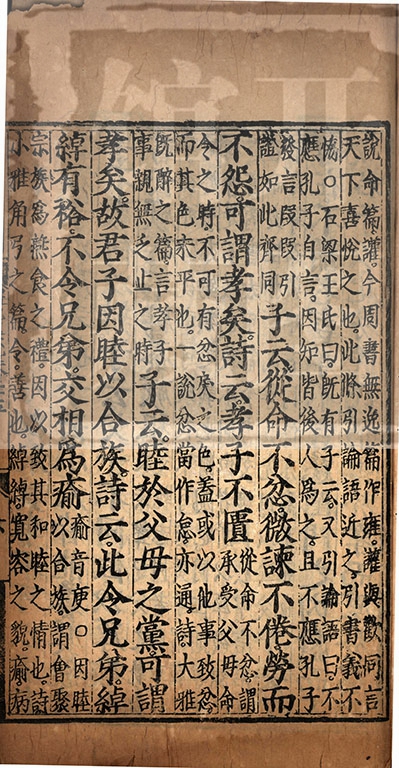 說命篇讙今周書無逸篇作雍讙與歡同言
天下喜悅之也此條引論語近之引書義不
恊○石梁王氏曰既有子云又引論語曰不
應孔子自言因知皆後人為之且不應孔子
發言段段引
證如此齊同
子云從命不忿微諫不倦勞而
不怨可謂孝矣詩云孝子不匱
從命不忿謂
承受父母命
令之時不可有忿戾之色蓋或以他事致忿
而其色未平也一說忿當作怠亦通詩大雅
既醉之篇言孝子
事親無乏止之時
子云睦於父母之黨可謂
孝矣故君子因睦以合族詩云此令兄弟綽
綽有裕不令兄弟交相為瘉
瘉音庾○因睦
以合族謂會聚
宗族為燕食之禮因以致其和睦之情也詩
小雅角弓之篇令善也綽綽寬容之貌瘉病